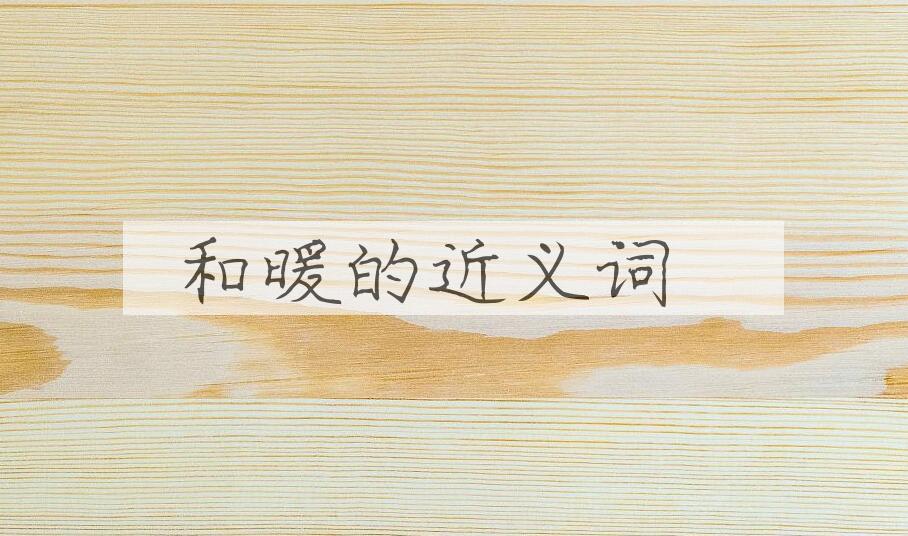 和暖的近义词